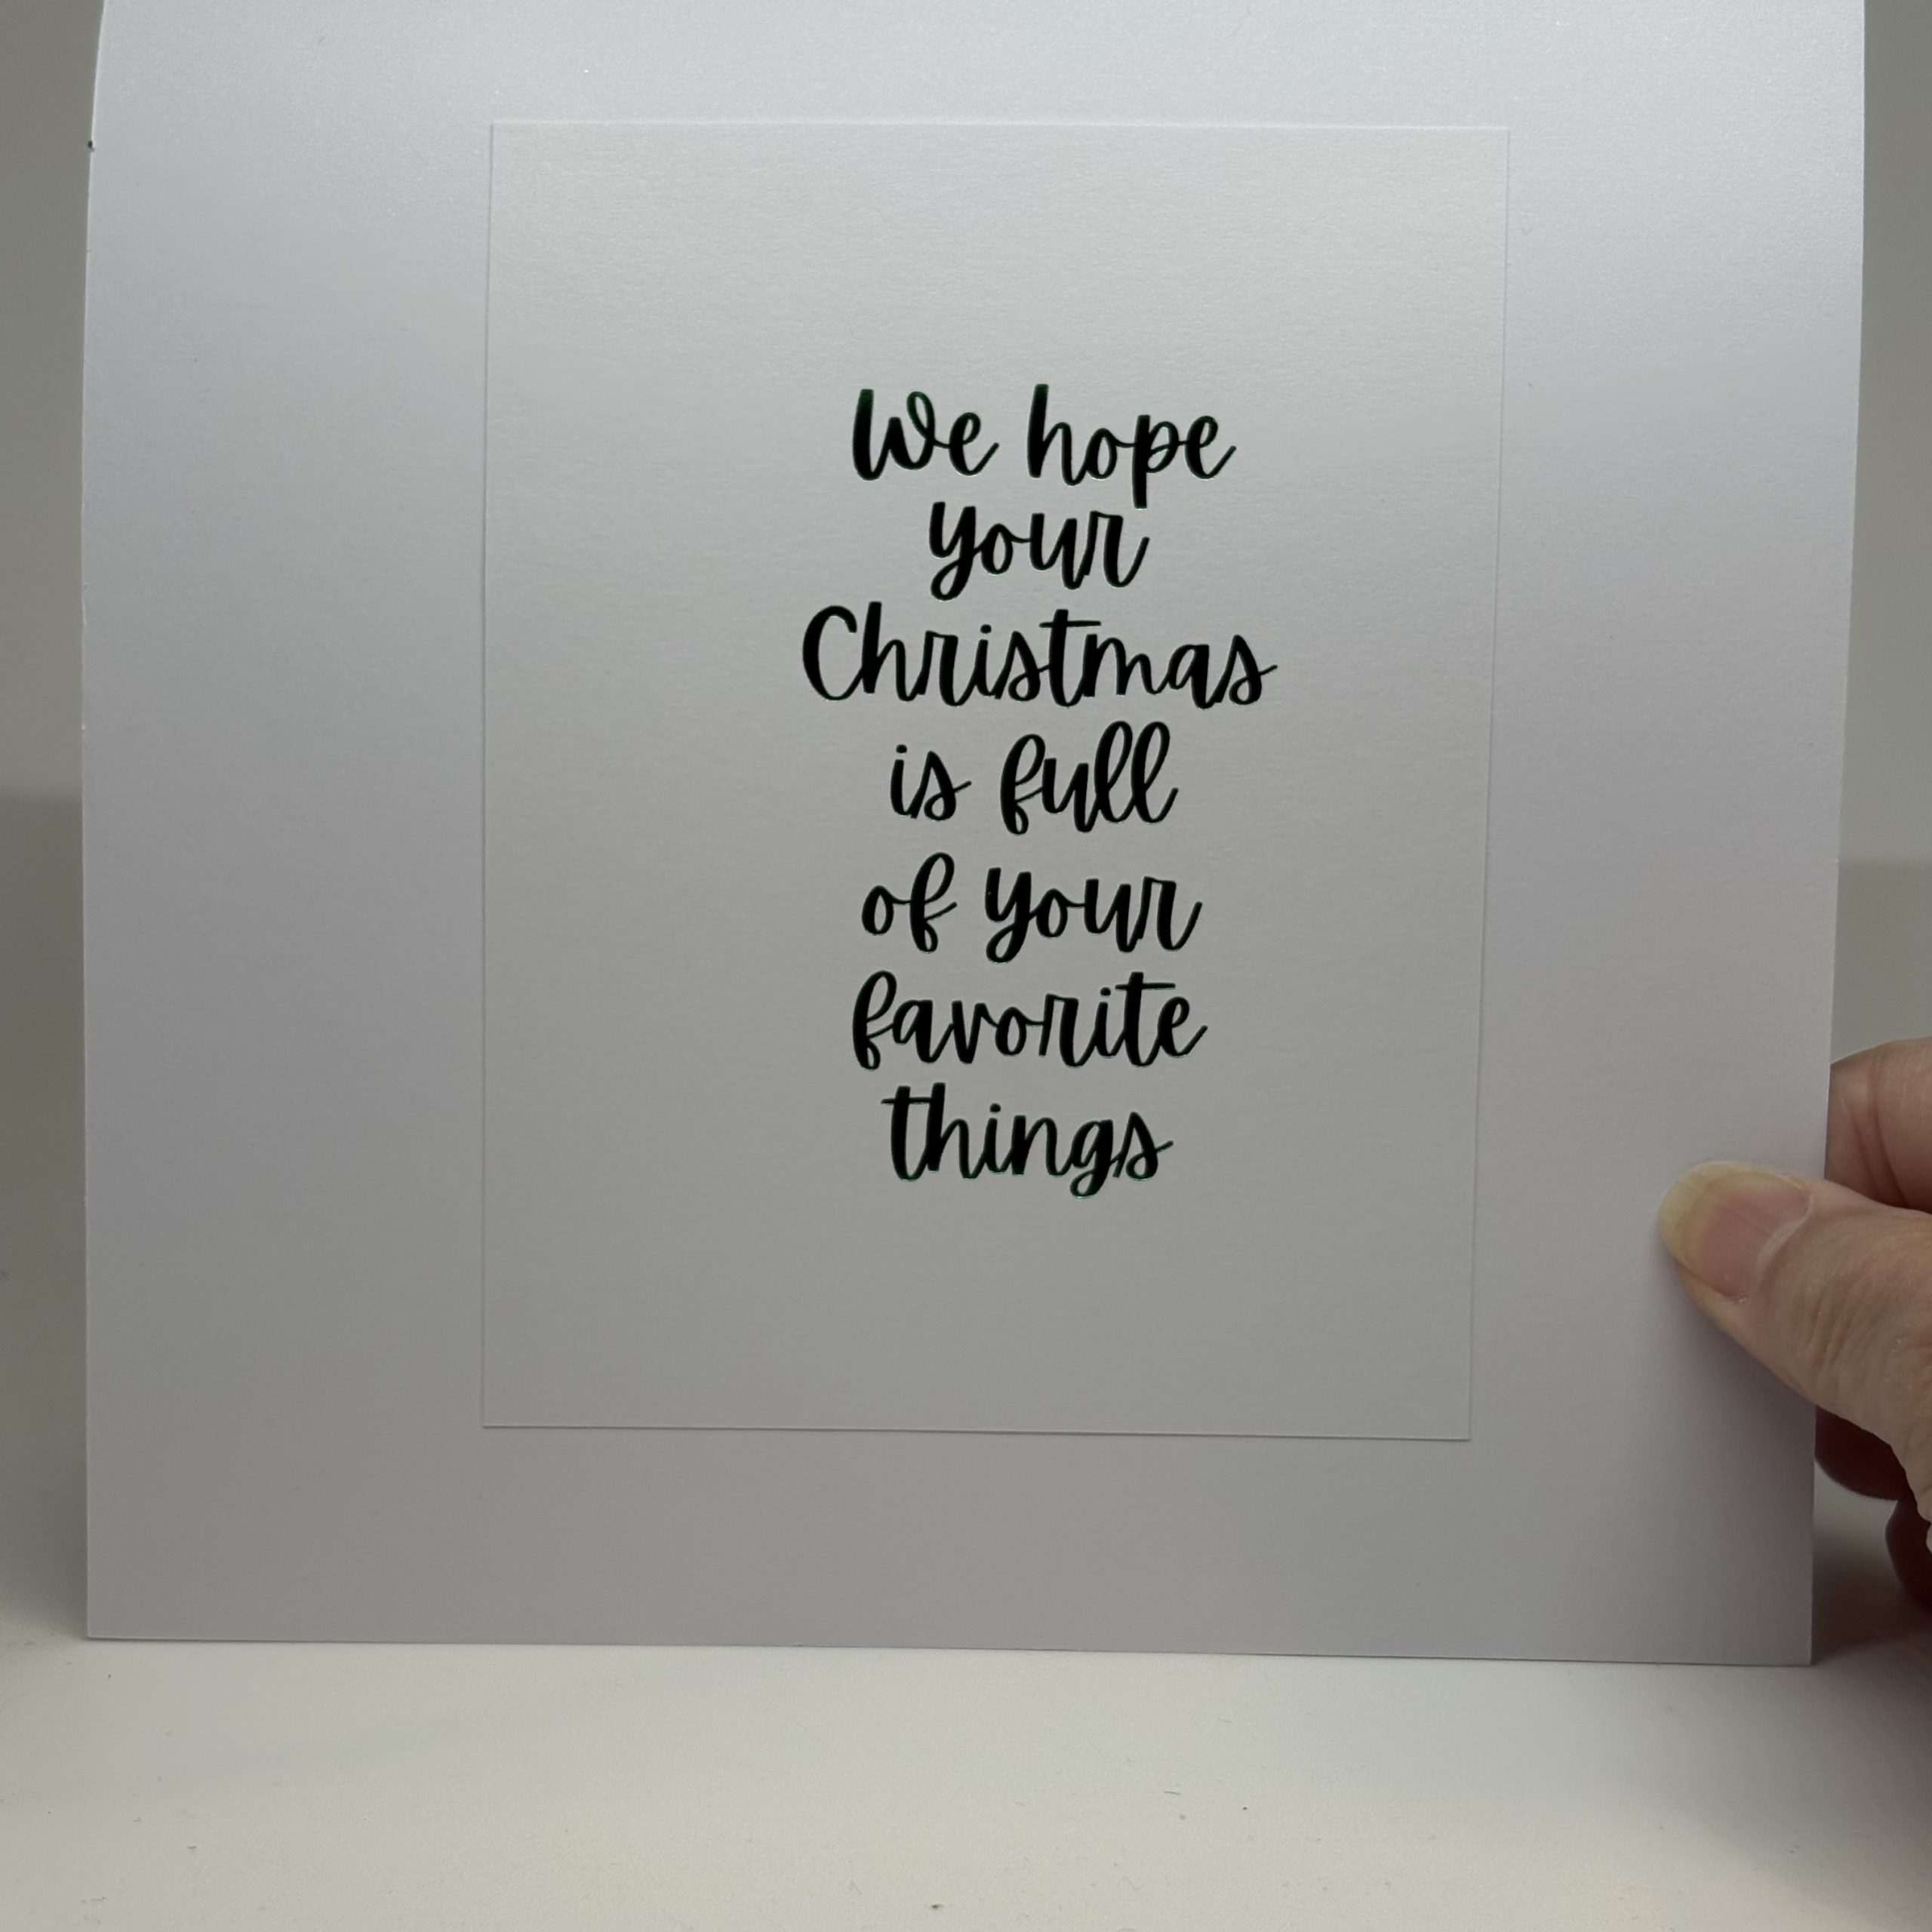 We hope
your
Christmas
is full
of your
favorite
things